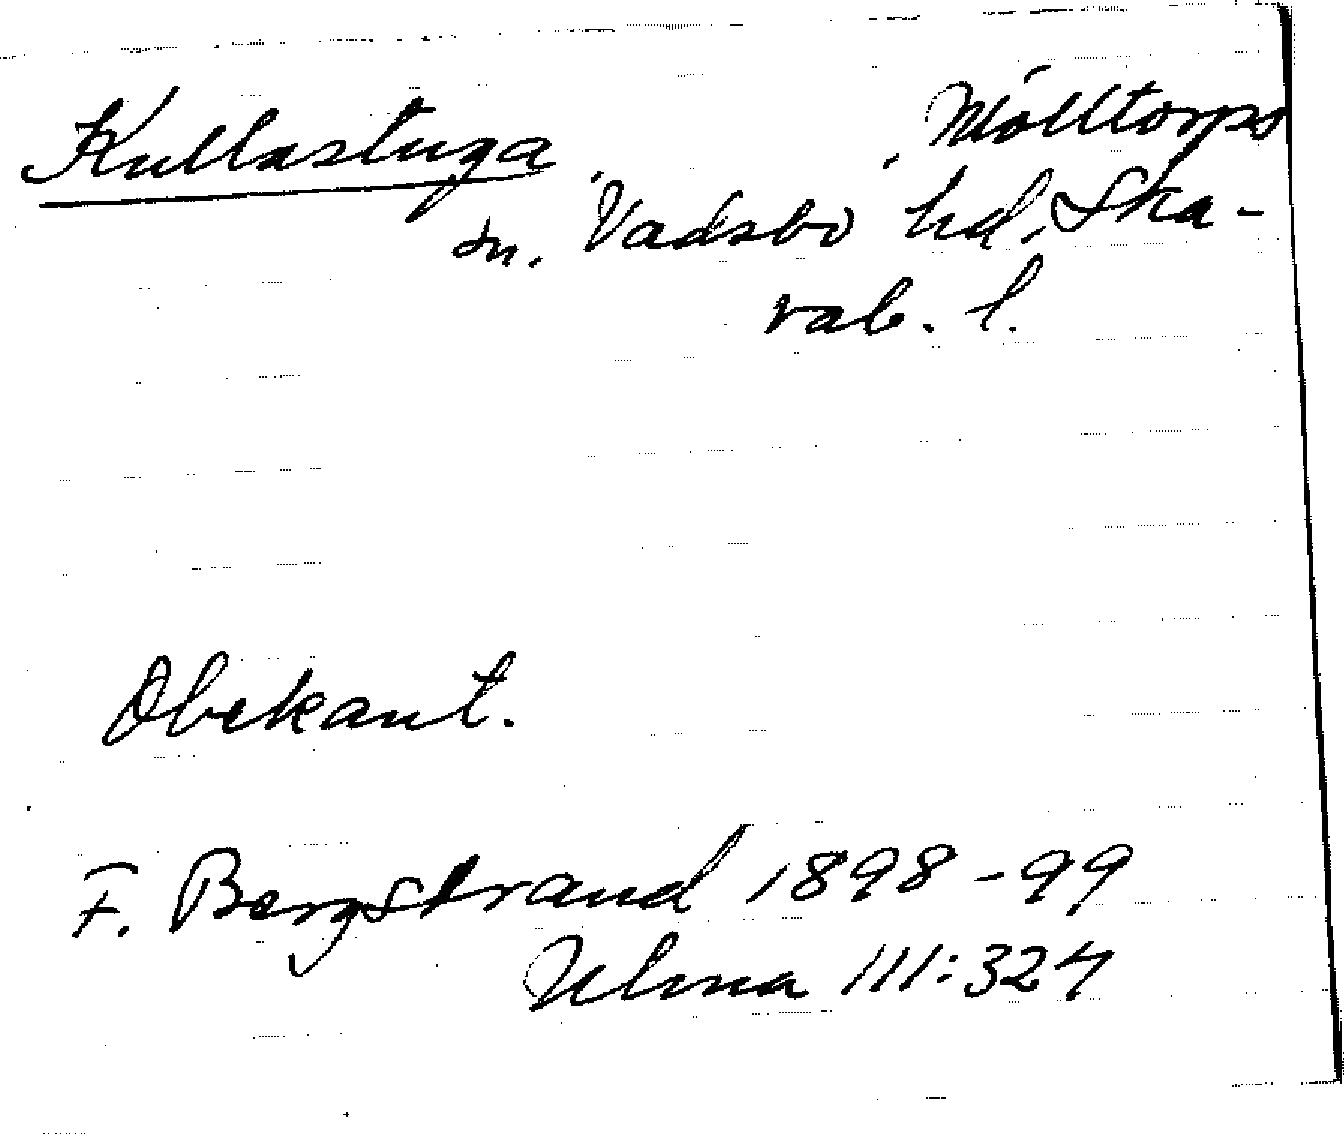 Kullastuga, Mölltorps
sn. Vadsbo hd, Ska-
rab. l.
Obekant.
F. Bergstrand 1898-99
Ulma 111:324